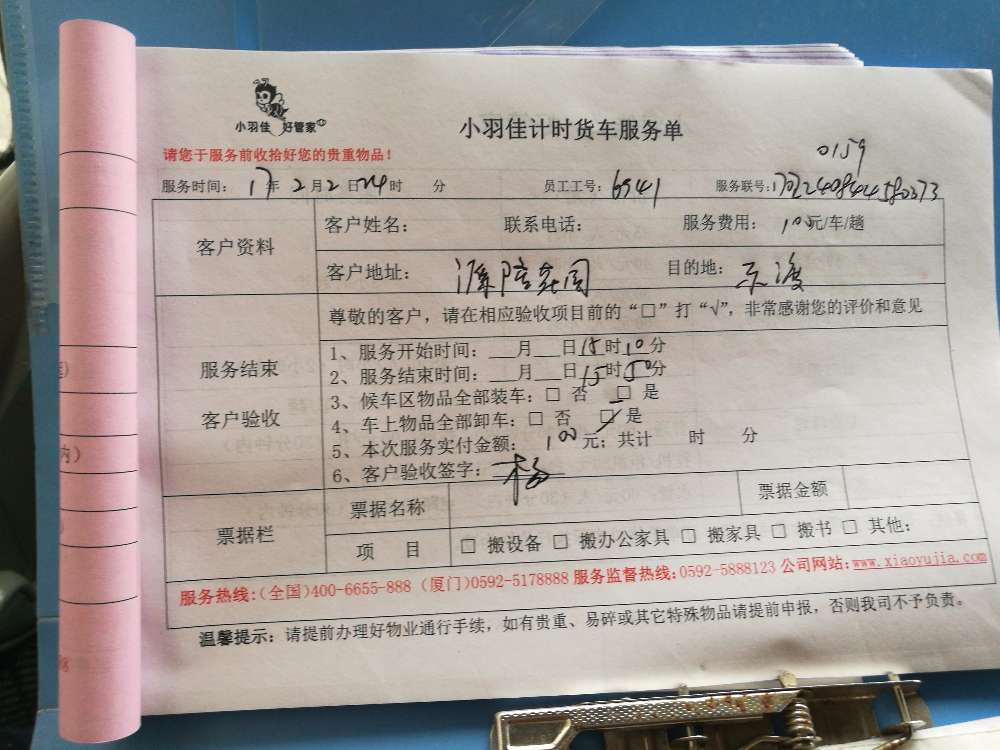 小羽佳 好管家
小羽佳计时货车服务单
请您于服务前收拾好您的贵重物品！
0159
服务时间： 17年 2月 2日 时 分 员工工号：6941 服务联号：
客户资料
客户姓名： 联系电话： 服务费用： 100元/车/趟
客户地址： 目的地： 东渡
服务结束
客户验收
尊敬的客户，请在相应验收项目前的“□”打“√”，非常感谢您的评价和意见
1、服务开始时间：___月___日15时10分
2、服务结束时间：___月___日15时50分
3、候车区物品全部装车：□ 否 □ 是
4、车上物品全部卸车：□ 否 □ 是
5、本次服务实付金额： 100元；共计 时 分
6、客户验收签字：杨
票据栏
票据名称 票据金额
项 目 □ 搬设备 □ 搬办公家具 □ 搬家具 □ 搬书 □ 其他：
服务热线：(全国)400-6655-888 (厦门)0592-5178888 服务监督热线：0592-5888123 公司网站：www.xiaoyujia.com
温馨提示：请提前办理好物业通行手续，如有贵重、易碎或其它特殊物品请提前申报，否则我司不予负责。